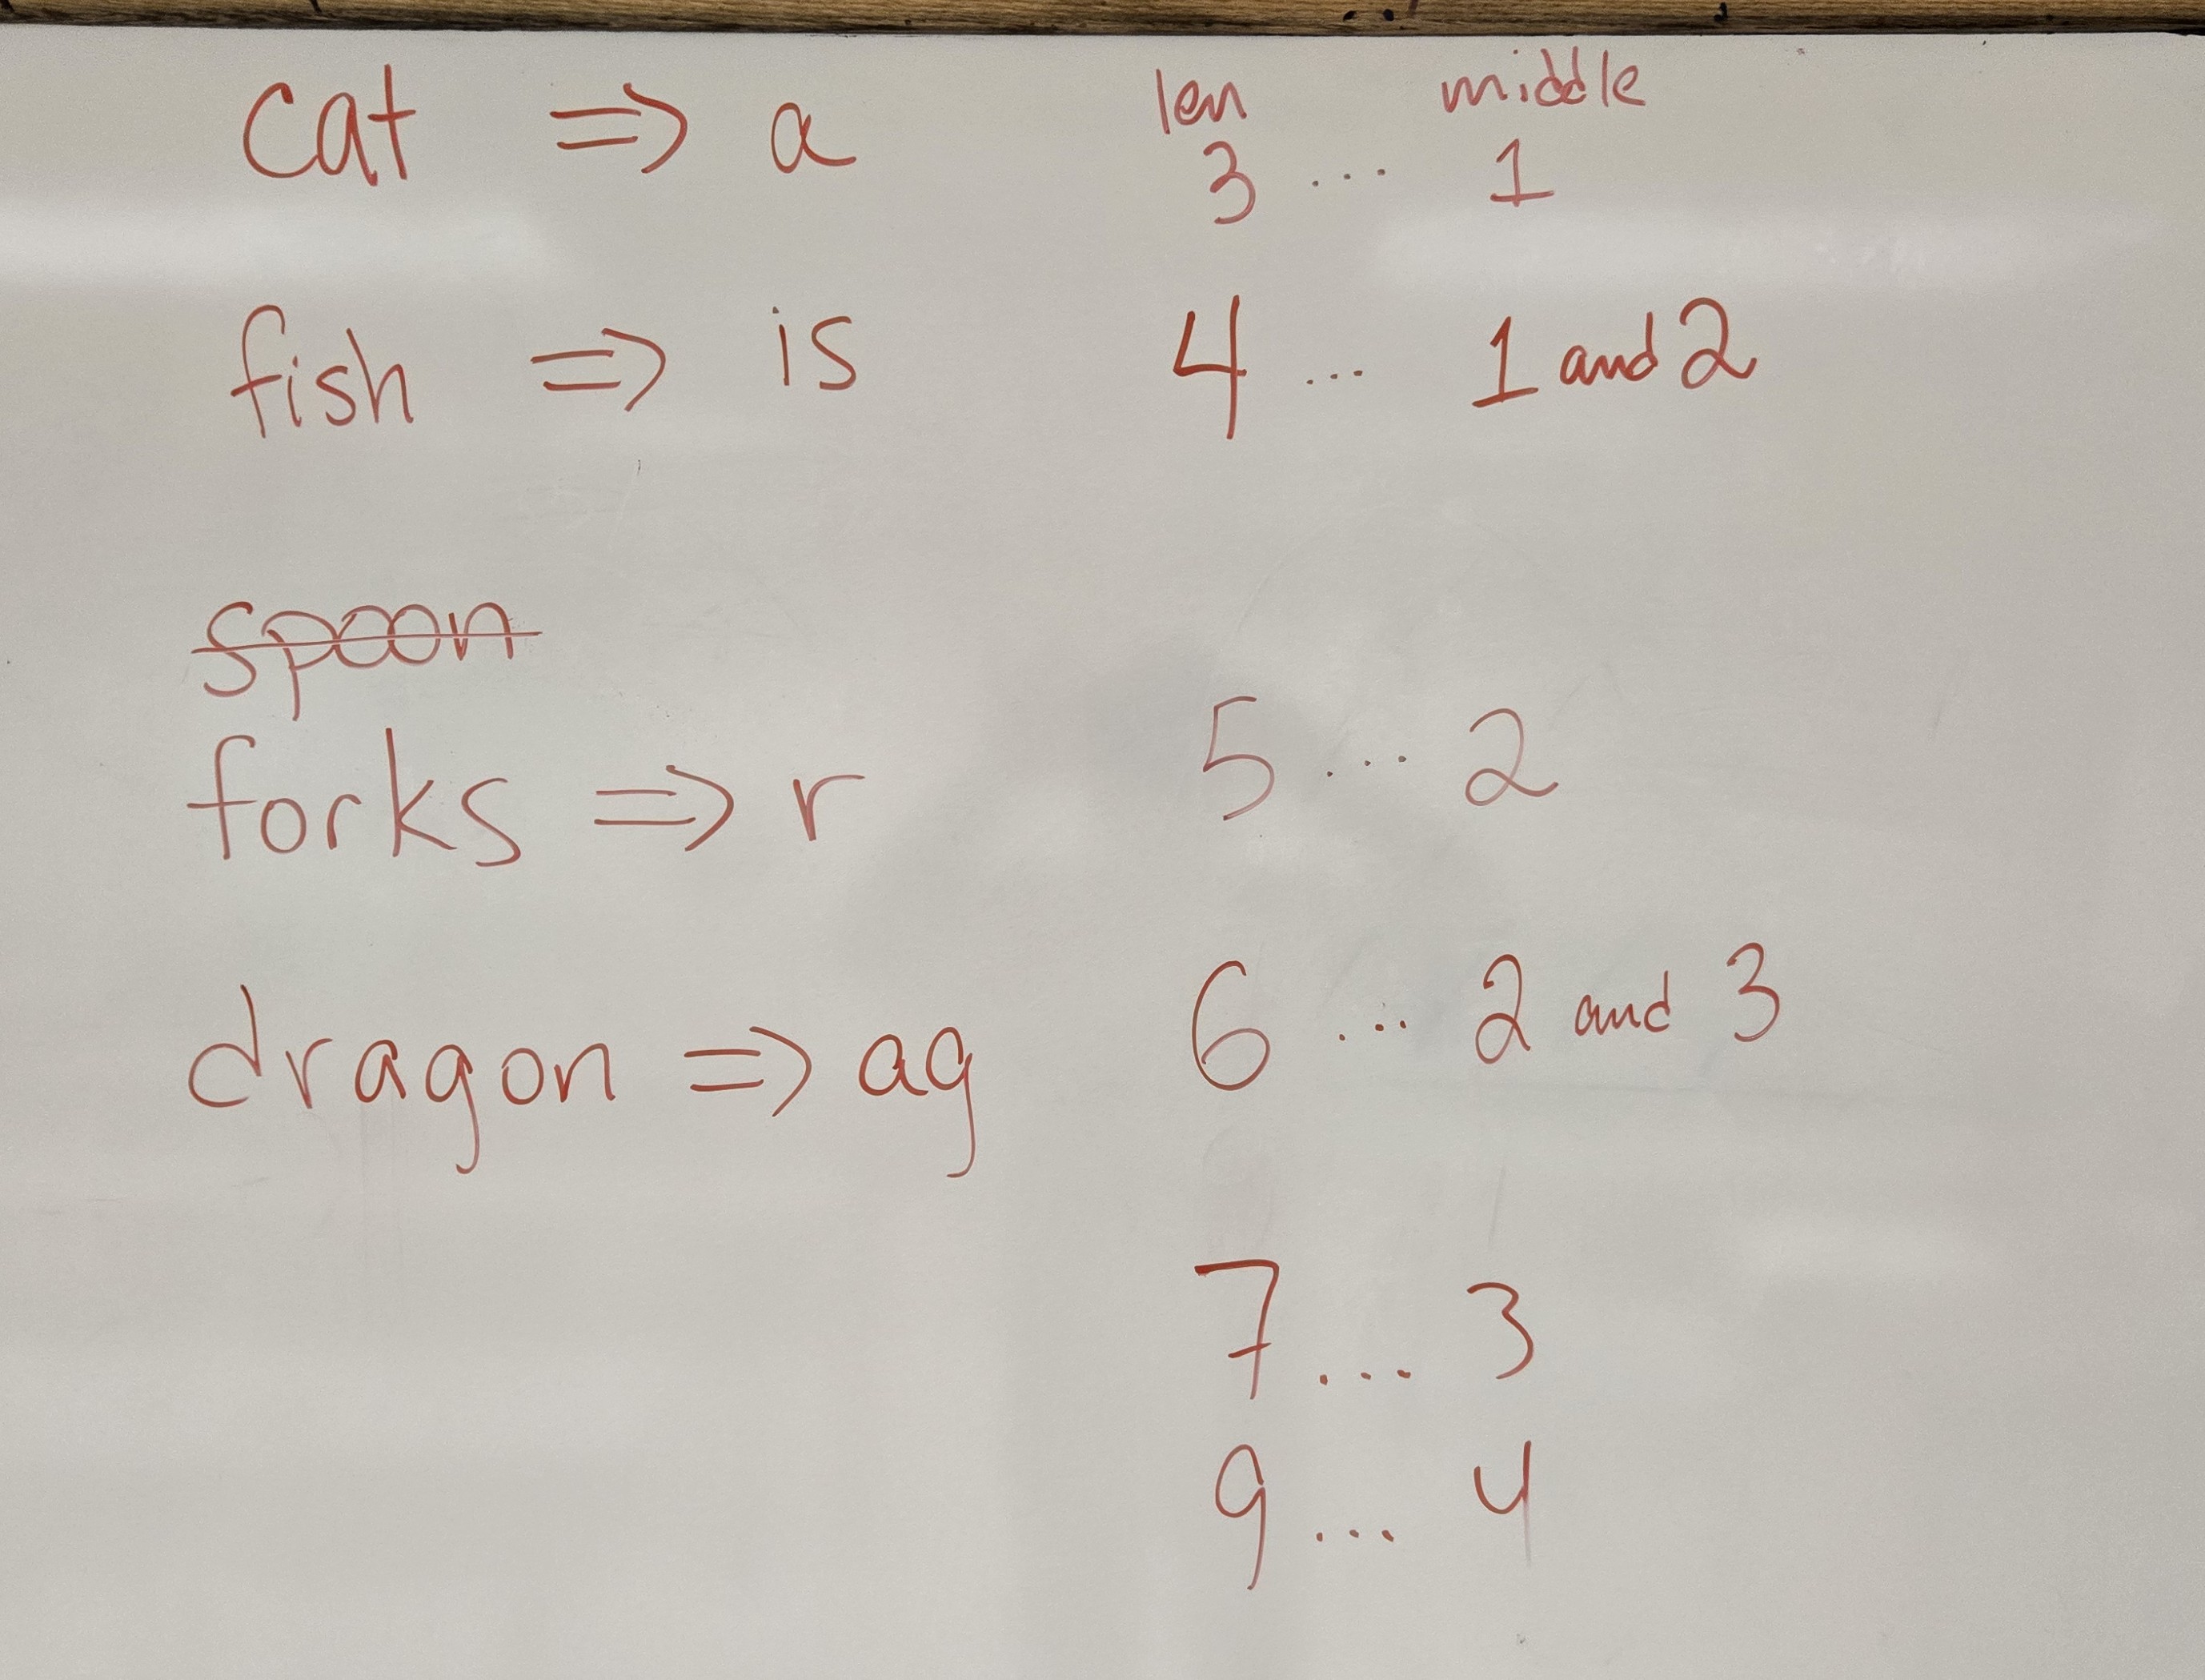 cat => a len middle
3 ... 1
fish => is 4 ... 1 and 2
spoon
forks => r 5 ... 2
dragon => ag 6 ... 2 and 3
7 ... 3
9 ... 4